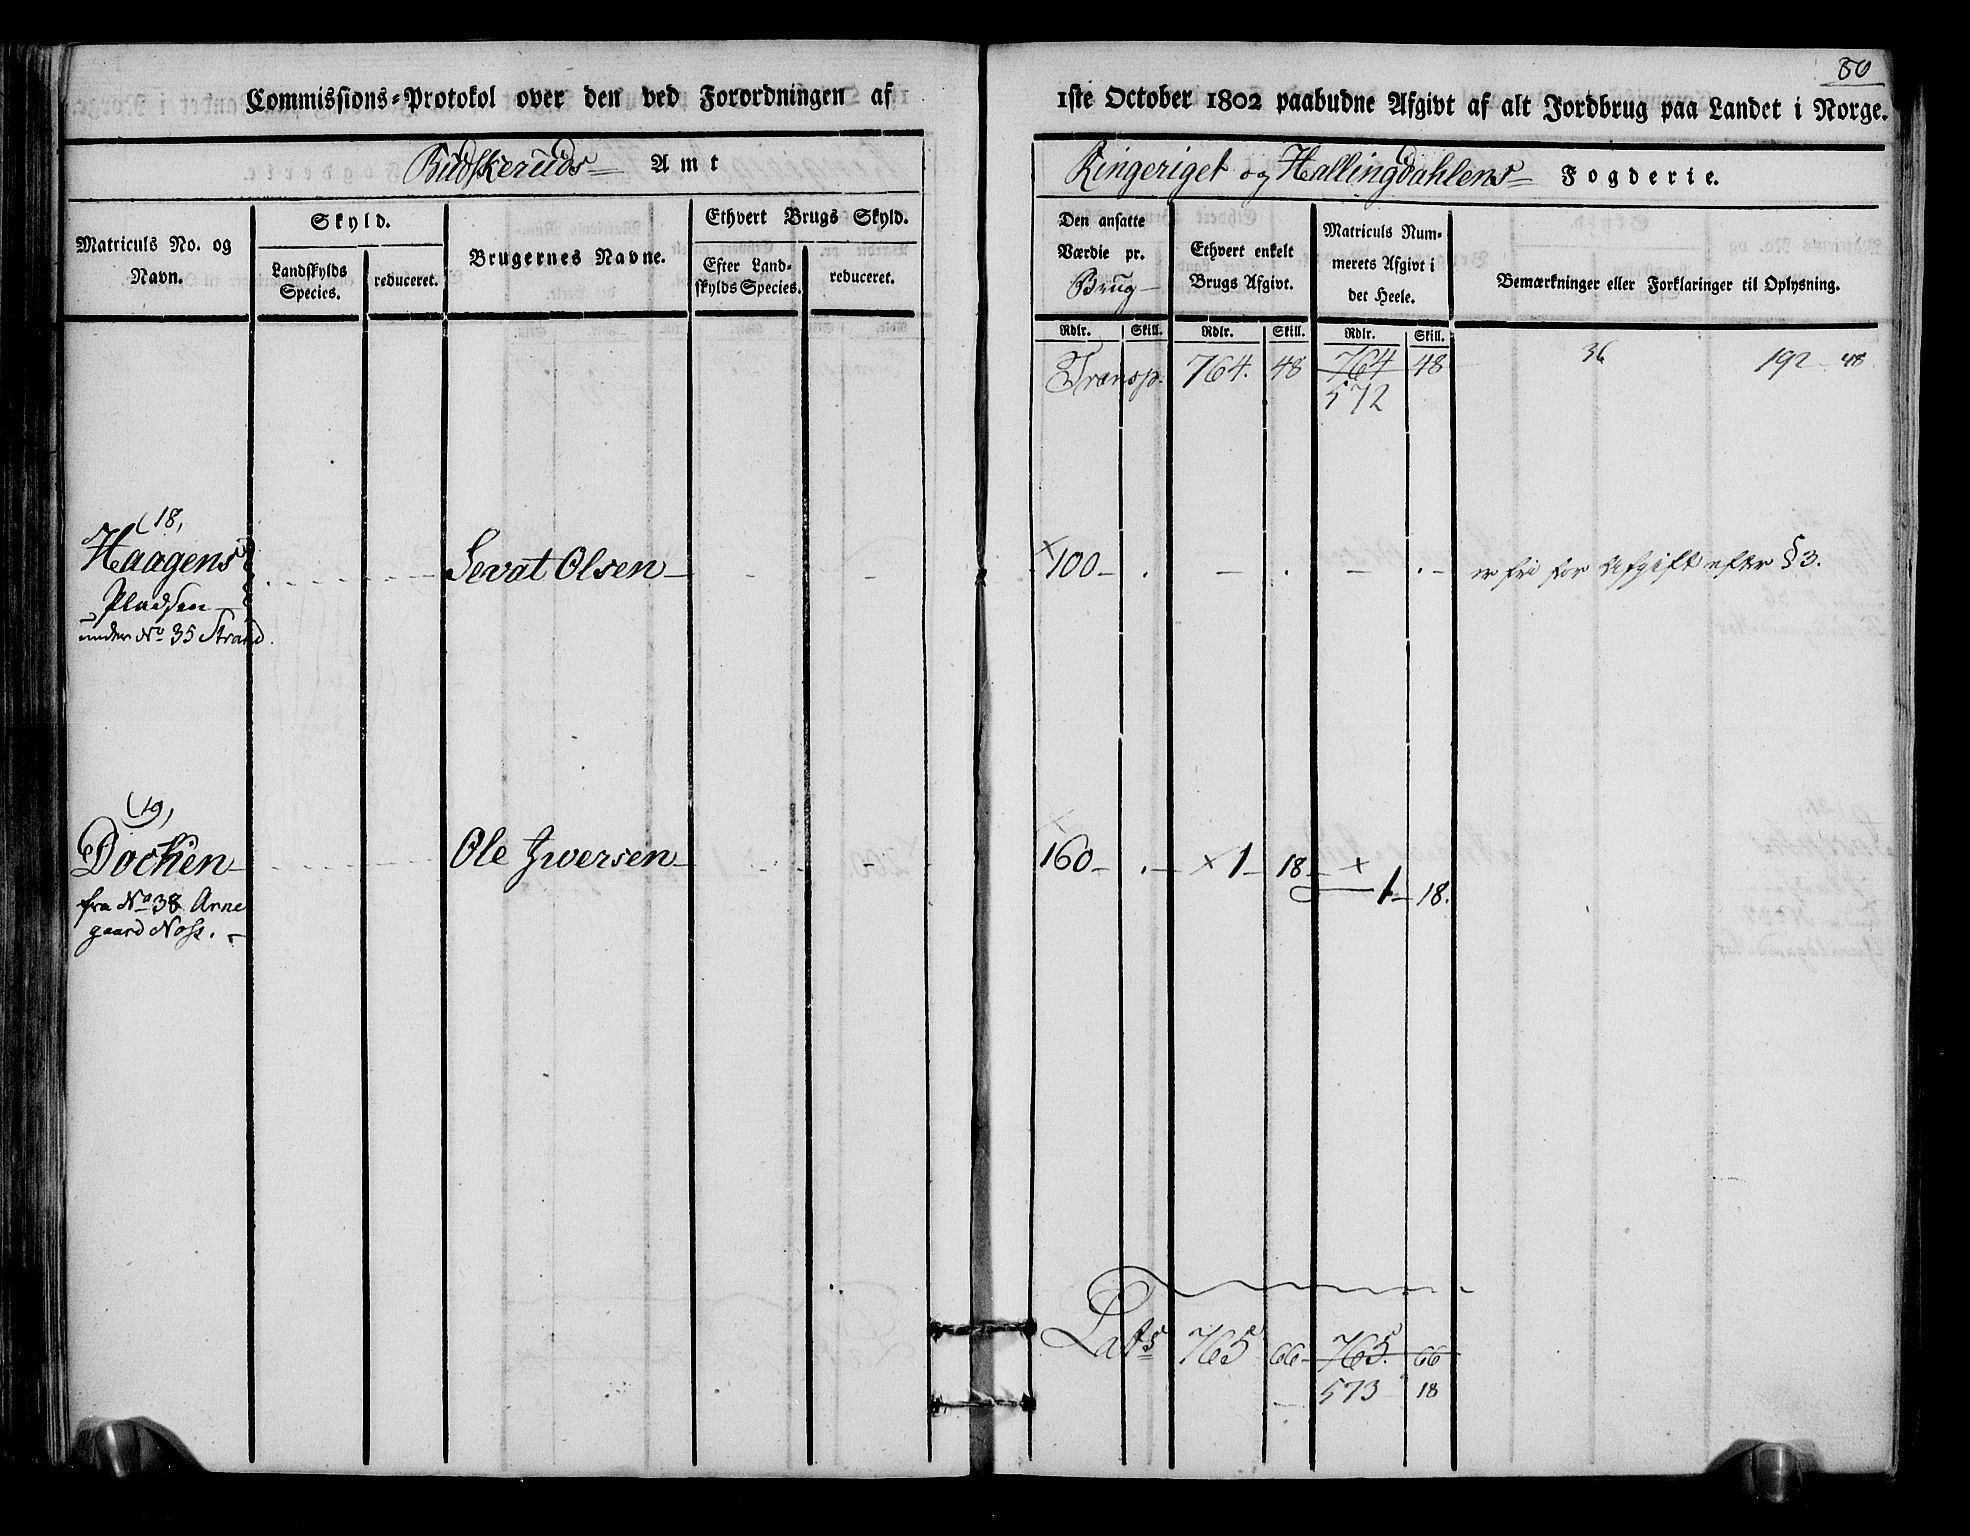 80
Commissions-Protokol over den ved Forordningen af 1ste October 1802 paabudne Afgivt af alt Jordbrug paa Landet i Norge.
Budskeruds Amt
Ringeriget og Hallingdahlens Fogderie.
Matriculs No. og Navn.
Skyld.
Landskylds Species.
reduceret.
Brugernes Navne.
Ethvert Brugs Skyld.
Efter Landskylds Species.
reduceret.
Den ansatte Værdie pr. Brug
Ethvert enkelt Brugs Afgivt.
Matriculs Nummerets Afgivt i det Heele.
Bemærkninger eller Forklaringer til Oplysning.
Rdlr. Skill. Rdlr. Skill. Rdlr. Skill.
Transp. 764. 48 764 48 36 192 48
572
18,
Haagens Sevat Olsen 100 er fri for Afgift efter §3.
Pladsen
under No 35 Strand.
19,
Dochen Ole Iwersen 160 1 18 1 18.
fra No 38 Arne
gaard
Lats 765 66 765. 66
573 18